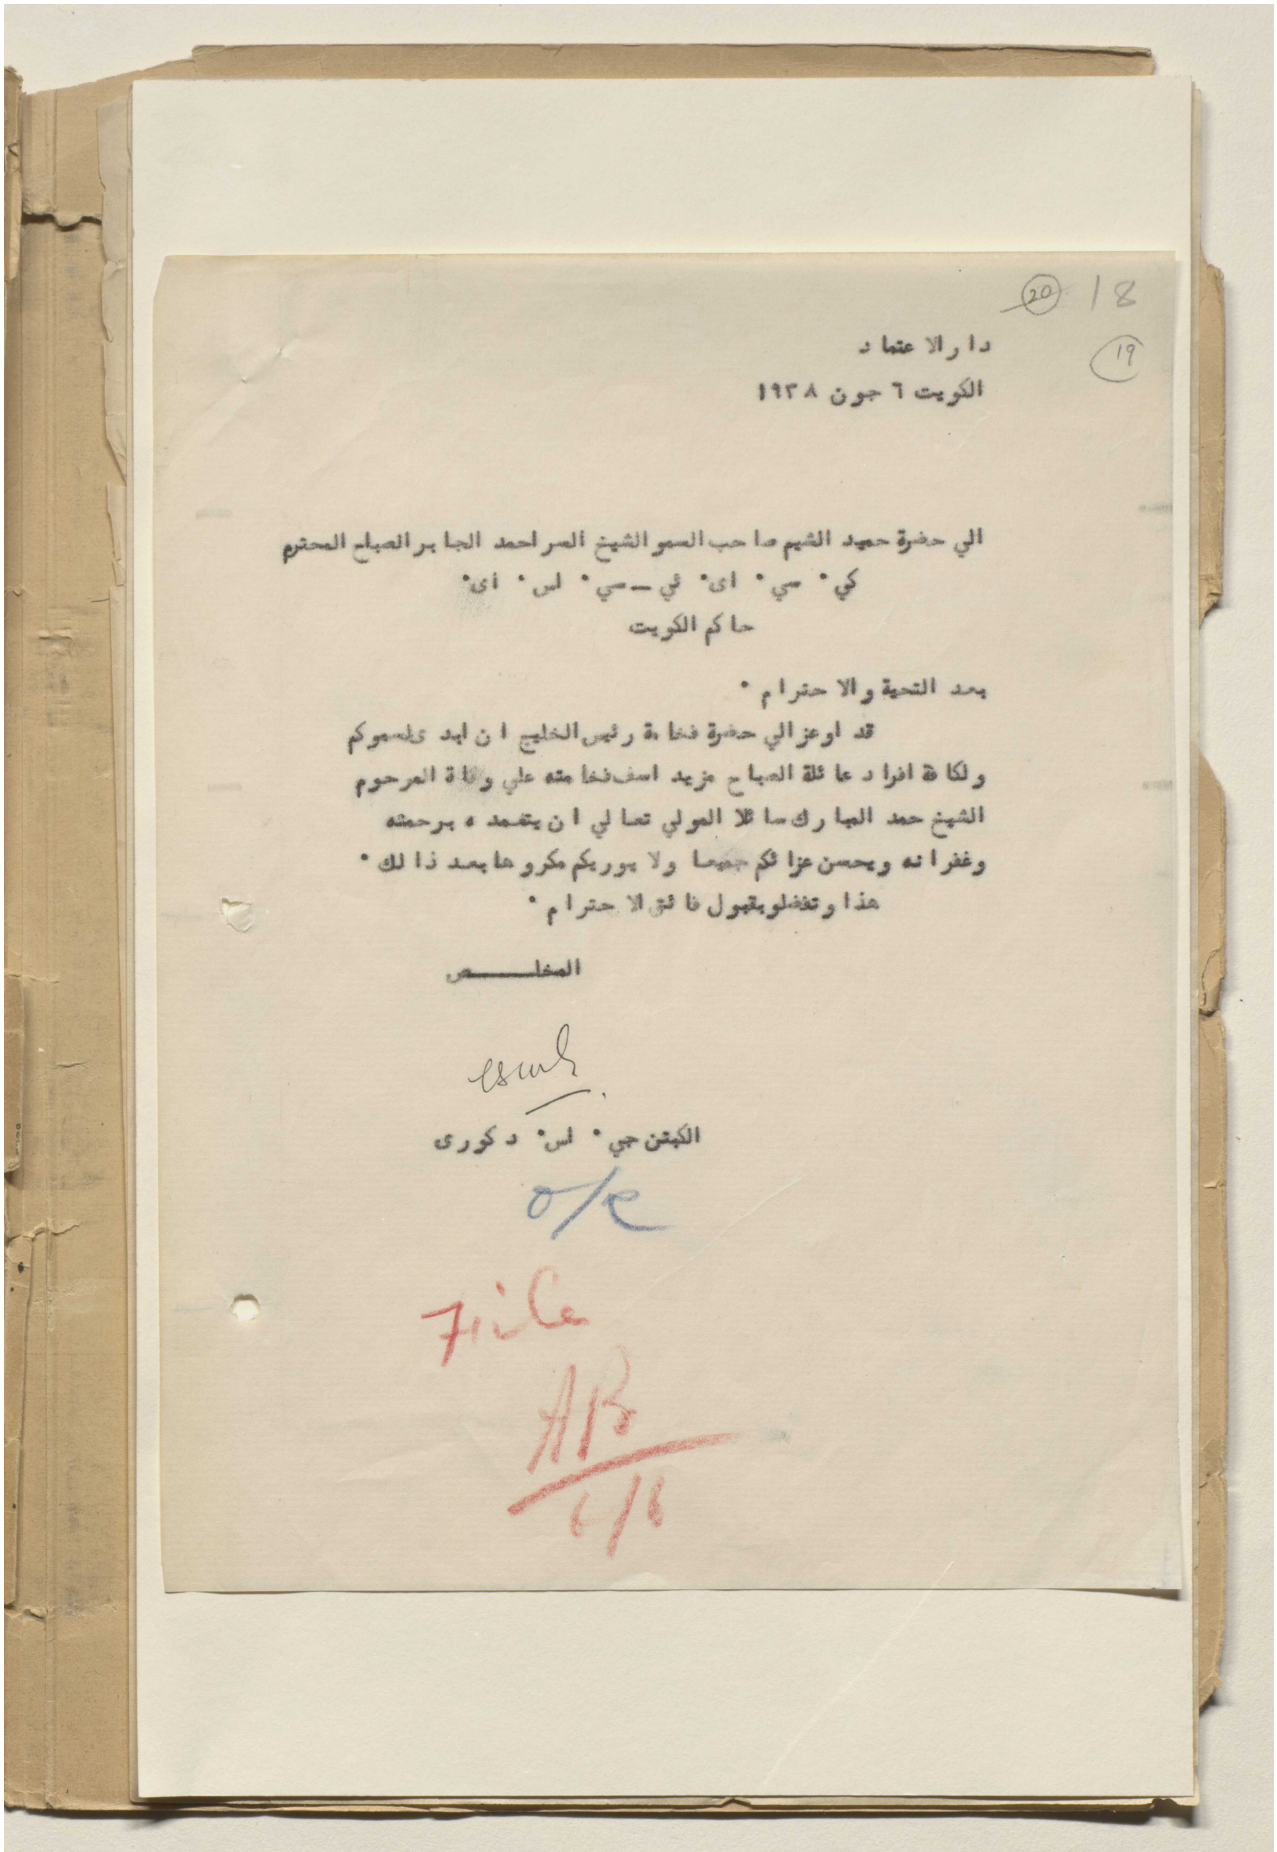 20 18
19
دار الاعتماد
الكويت ٦ جون ١٩٣٨
الي حضرة حميد الشيم صاحب السمو الشيخ السر احمد الجابر الصباح المحترم
كي٠ سي٠ اى٠ ئي - سي٠ اس٠ اى٠
حاكم الكويت
بعد التحية والاحترام ٠
قد اوعز الي حضرة فخامة رئيس الخليج ان ابدى لسموكم
ولكافة افراد عائلة الصباح مزيد اسف فخامته علي وفاة المرحوم
الشيخ حمد المبارك سائلا المولي تعالي ان يتغمده برحمته
وغفرانه ويحسن عزائكم جميعا ولا يوريكم مكروها بعد ذالك ٠
هذا وتفضلو بقبول فائق الاحترام ٠
المخلــــص
الكبتن جي٠ اس٠ دكورى
O/R
File
AB
6/6